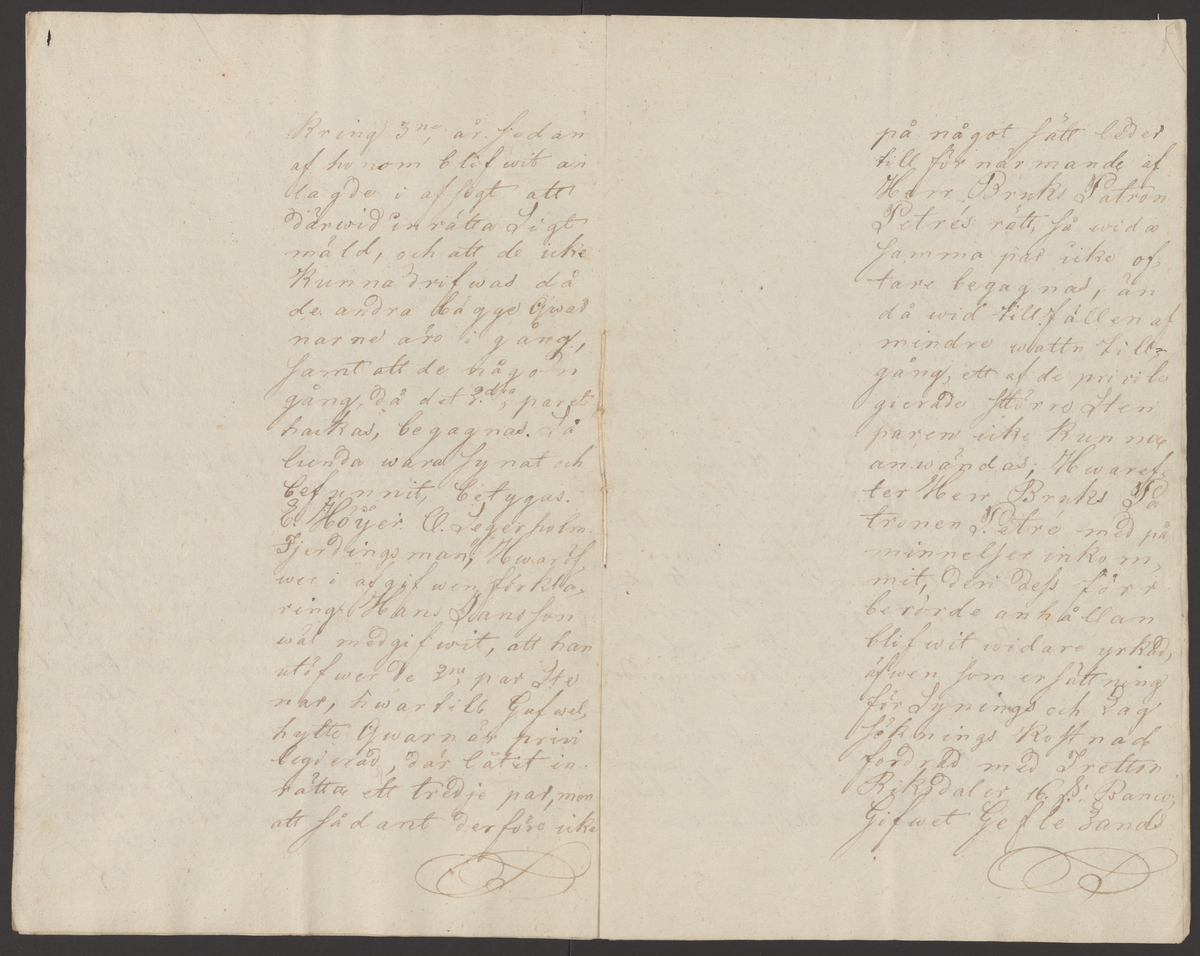 kring 3ne, år sedan
af honom blifwit an
lagde i afsigt att
därwid inrätta Sigt
mäld, och att de icke
kunna drifwas då
de andra bägge Qwar
narne äro i gång,
samt att de någon
gång, då det 2dra, paret
hackas, begagnas. Så
lunda wara synat och
befunnit, betygas.
E. Höijer. O. Segerholm.
Fjerdingsman; Hwaröf,
wer i afgifwen förkla,
ring Hans Hansson
wäl medgifwit, att han
utöfwer de 2ne, par Ste
nar, hwartill Gafwel,
hytte Qwarn är privi
legierad, där låtit in
rätta ett tredje par, men
att sådant derföre icke
på något sätt leder
till förnärmande af
Herr Bruks Patron
Petrés rätt, så wida
samma par icke of,
tare begagnas, än
då wid tillfällen af
mindre wattn till=
gång, ett af de privile
gierade större Sten
paren icke kunna
användas; Hwaref,
ter Herr Bruks Pa
tronen Petré med på
minnelser inkom,
mit, deri dess förr
berörde anhållan
blifwit widare yrkad,
äfwen som ersättning
för Synings och Lag
söknings kostnad
fordrad med Tretton
Riksdaler 16 s. Banco;
Gifwet Gefle Lands